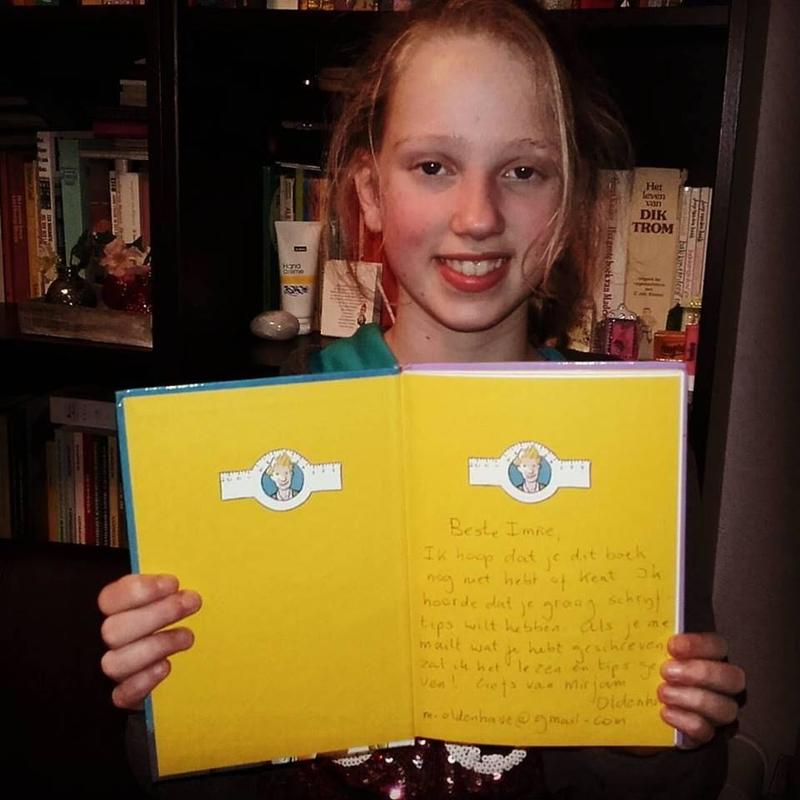 Het
leven
van
DIK
TROM
Hand
crème
Beste Imme,
Ik hoop dat je dit boek
nog niet hebt of kent Ik
hoorde dat je graag schrijf-
tips wilt hebben. Als je me
mailt wat je hebt geschreven
zal ik het lezen en tips ge
ven! Liefs van Mirjam
Oldenha
m.oldenhave@gmail.com